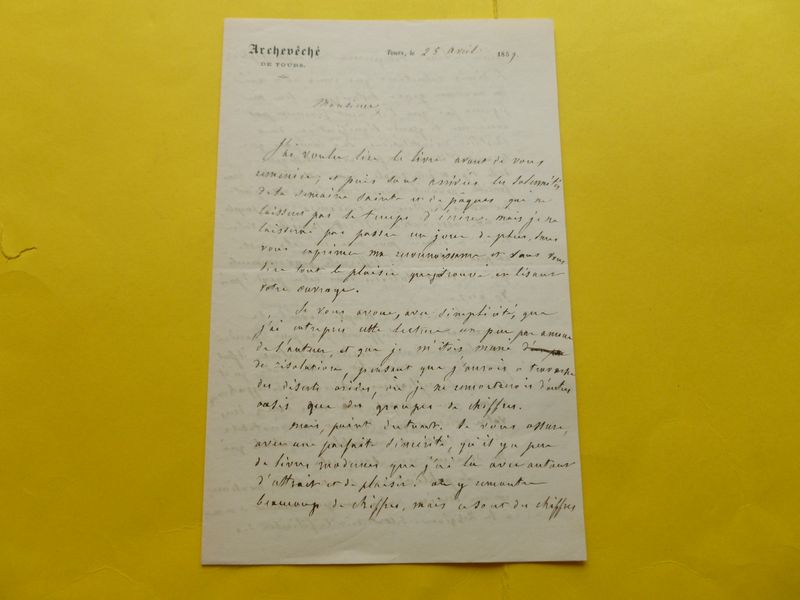 Archevêché
DE TOURS.
Tours, le 25 avril 1859.
Monsieur,
J'ai voulu lire le livre avant de vous
remercier, et puis sont arrivées les solennités
de la semaine sainte et de pâques qui ne
laissent pas le temps d'écrire. mais je ne
laisserai pas passer un jour de plus, sans
vous exprimer ma reconnoissance et sans vous
dire tout le plaisir que j'ai trouvé en lisant
votre ouvrage.
Je vous avoue, avec simplicité, que
j'ai entrepris cette lecture un peu par amour
de l'auteur, et que je m'étois muni
de résolution, pensant que j'aurois à traverser
des déserts arides, où je ne rencontrerois d'autres
oasis que des groupes de chiffres.
mais, point du tout. Je vous assure,
avec une parfaite sincérité, qu'il y a peu
de livres modernes que j'ai lu avec autant
d'attrait et de plaisir. on y rencontre
beaucoup de chiffres, mais ce sont des chiffres